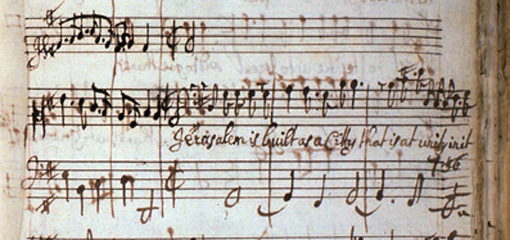 Jerusalem is built as a Citty that is at unity in it